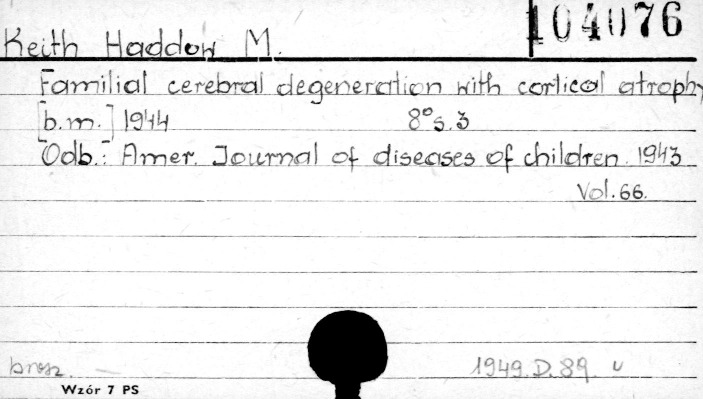 104076
Keith Haddow M.
Familial cerebral degeneration with cortical atrophy
[b.m.] 1944 8° s. 3
Odb.: Amer. Journal of diseases of children. 1943
Vol. 66.
brosz. — 1949. D. 89. u
Wzór 7 PS